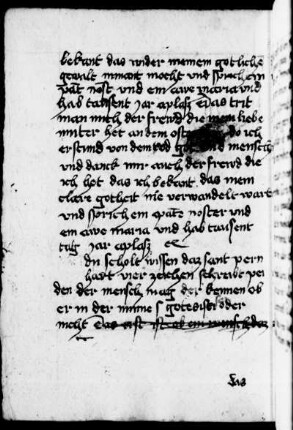 bekant das wider meinem gotliche
gewalt nimant mocht und sprich ein
pat nost und ein ave maria und
hab tausent jar aplasz Das trit
man mich der freud die mein liebe
muter het an dem oster do ich
erstund von dem tod got mensch
und danck mir auch der freud die
ich het das ich bekant das mein
clare gotheit nie verwandelt wart
und sprich ein pater noster und
ein ave maria und hab tausent
tag jar aplasz
du scholt wissen daz sant pern
hart vier zeichen schreibt pei
den der mensch mag der kennen ob
er in der minne gotes ist oder
nicht Das erst ist ob ein mensch daz